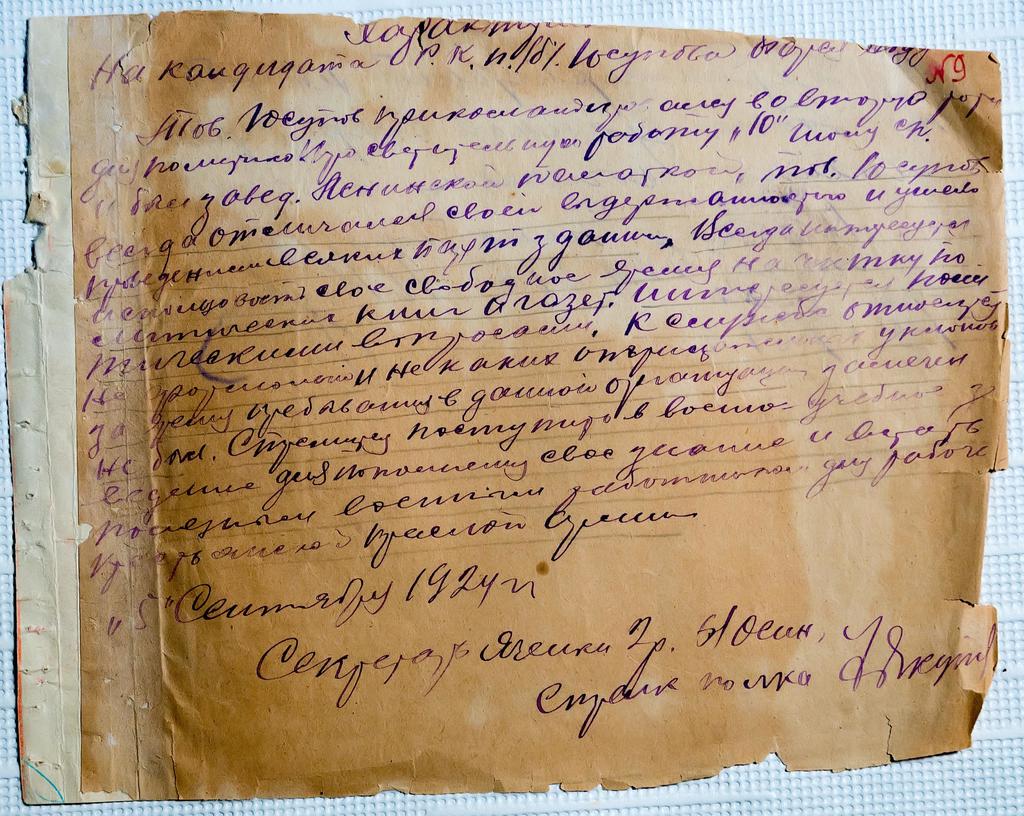 Характ
На кандидата Р.К.П./б/. Юсупова
№9
Тов. Юсупов прикомандир. во вторую роту
для политико просветительную работу "10"
и был завед. Ленинской палаткой, тов. Юсупов
всегда отличался своей выдержанностью и умело
проведением всяких парт зданий, Всегда интересуется
использовать свое свободное время на читку по
литических книг и газет. Интересуется поли
тическими вопросами. К службе относится
не и не каких отрицательных уклонов
за время пребывания в данной организации замечен
не был. Стремится поступить в воено учебное з
ведение для пополнения свое знание и встать
полезным военным работником для рабоче
крестьянской красной армии
"5" Сентября 1924 г
Секретарь Ячейки 2 р.
полка